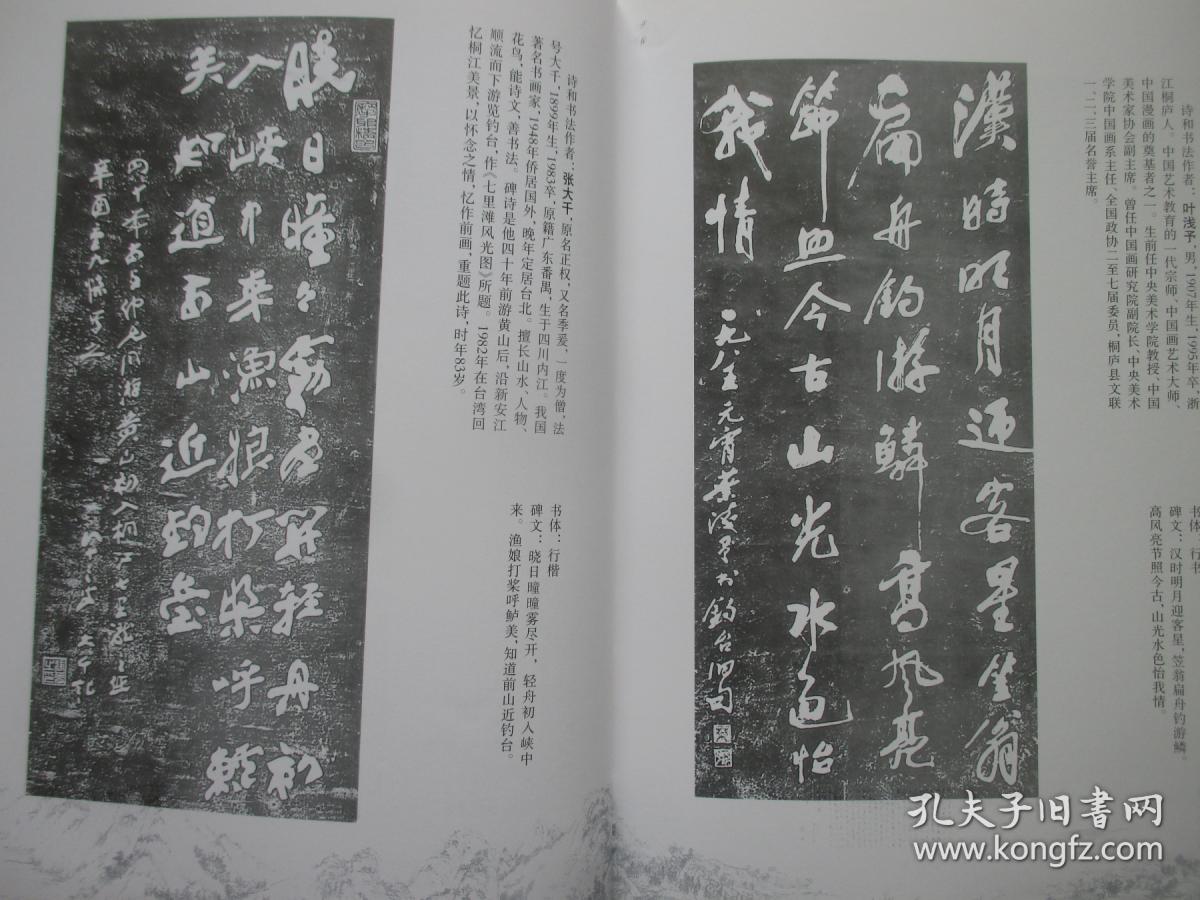 诗和书法作者：叶浅予，男，1907年生，1995年卒，浙
江桐庐人。中国艺术教育的一代宗师、中国画艺术大师、
中国漫画的奠基者之一。生前任中央美术学院教授、中国
美术家协会副主席。曾任中国画研究院副院长、中央美术
学院中国画系主任、全国政协二至七届委员，桐庐县文联
一、二、三届名誉主席。
书体：行书
碑文：汉时明月迎客星，笠翁扁舟钓游鳞。
高风亮节照今古，山光水色怡我情。
漢時明月迎客星笠翁
扁舟钓游鳞高风亮
節照今古山光水色怡
我情
诗和书法作者：张大千，原名正权，又名季爰，一度为僧，法
号大千，1899年生，1983卒，原籍广东番禺，生于四川内江。我国
著名书画家，1948年侨居国外，晚年定居台北。擅长山水、人物、
花鸟，能诗文，善书法。碑诗是他四十年前游黄山后，沿新安江
顺流而下游览钓台，作《七里滩风光图》所题。1982年在台湾回
忆桐江美景，以怀念之情，忆作前画，重题此诗，时年83岁。
书体：行楷
碑文：晓日曈曈雾尽开，轻舟初入峡中
来。渔娘打桨呼鲈美，知道前山近钓台。
曉日曈々霧尽開輕舟初
入峡中来漁娘打桨呼鲈
美知道前山近钓臺
孔夫子旧书网
www.kongfz.com